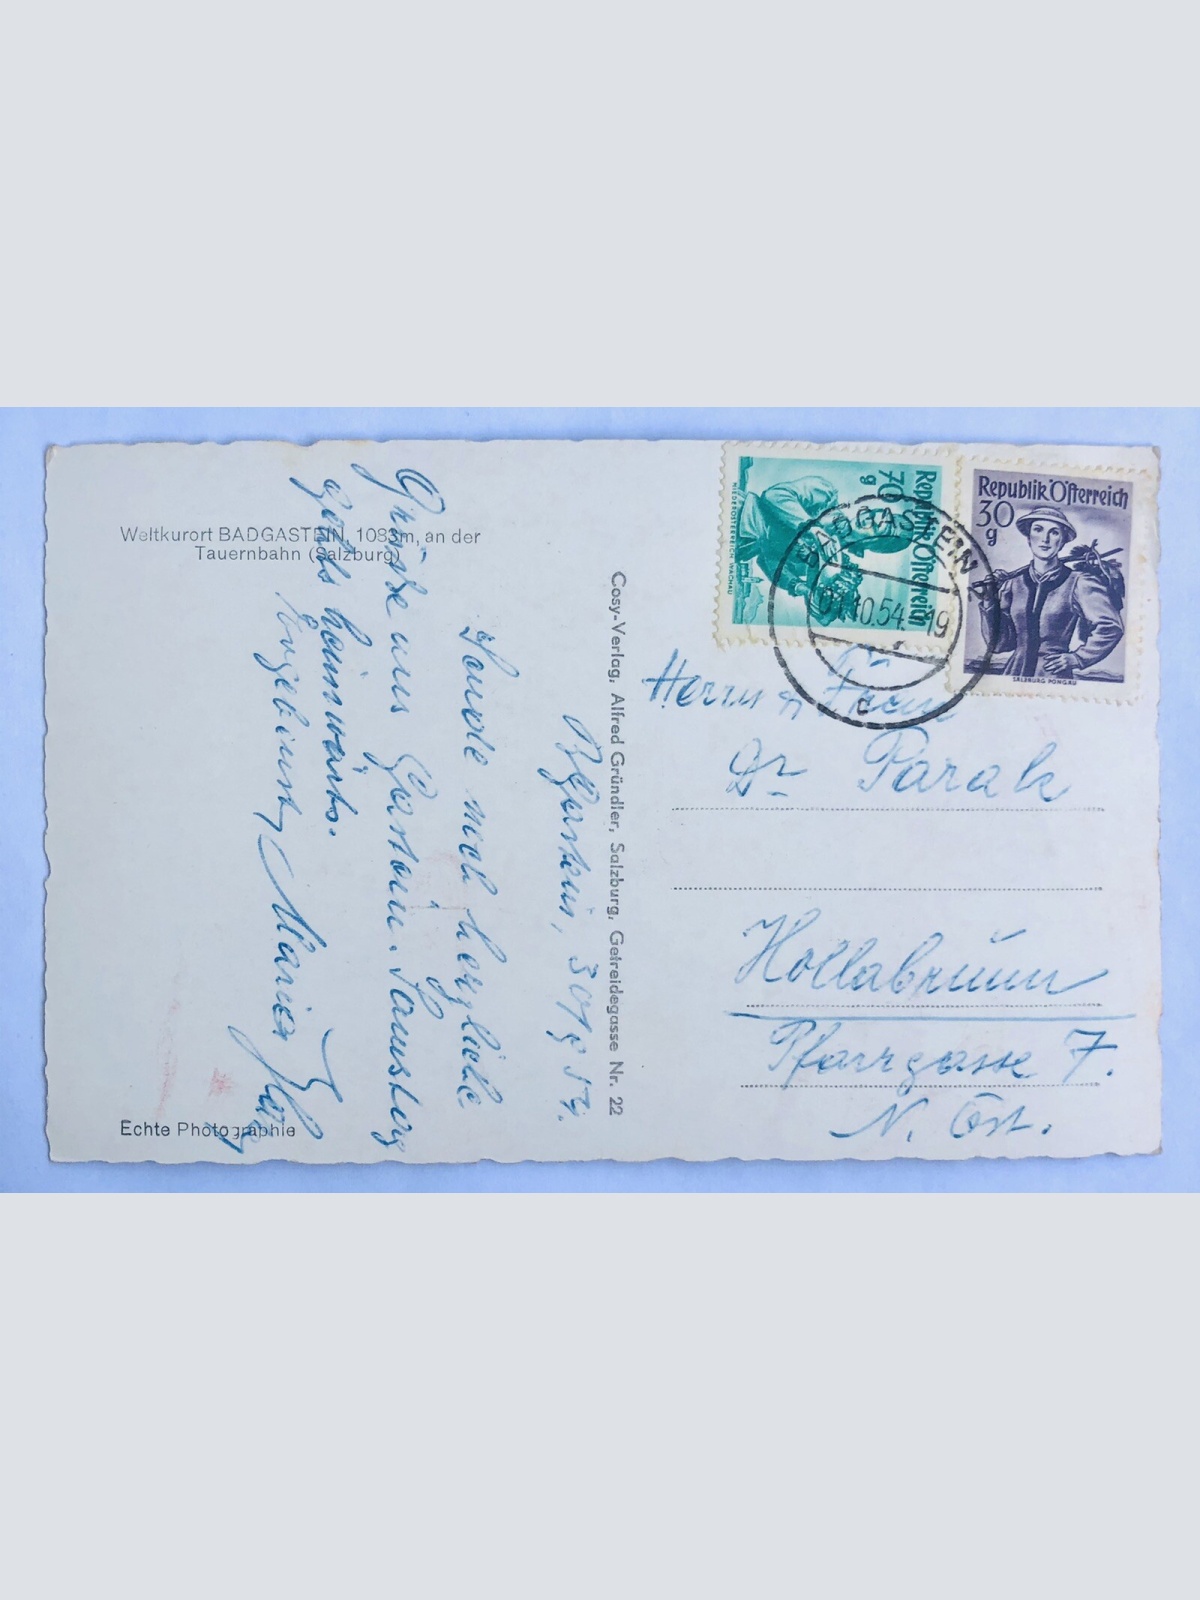 Weltkurort BADGASTEIN, 1083m, an der
Tauernbahn (Salzburg)
Bgastein, 30/9 54.
Sende noch herzliche
Grüße aus Gastein. Samstag
geht's heimwärts.
Ergebenst
Echte Photographie
Cosy-Verlag, Alfred Gründler, Salzburg, Getreidegasse Nr. 22
Republik Österreich
70 g
NIEDERÖSTERREICH WACHAU
Republik Österreich
30 g
SALZBURG PONGAU
BADGASTEIN
01.10.54-19
c
Herrn Frau
Dr Parak
Hollabrunn
Pfarrgasse 7.
N. Öst.